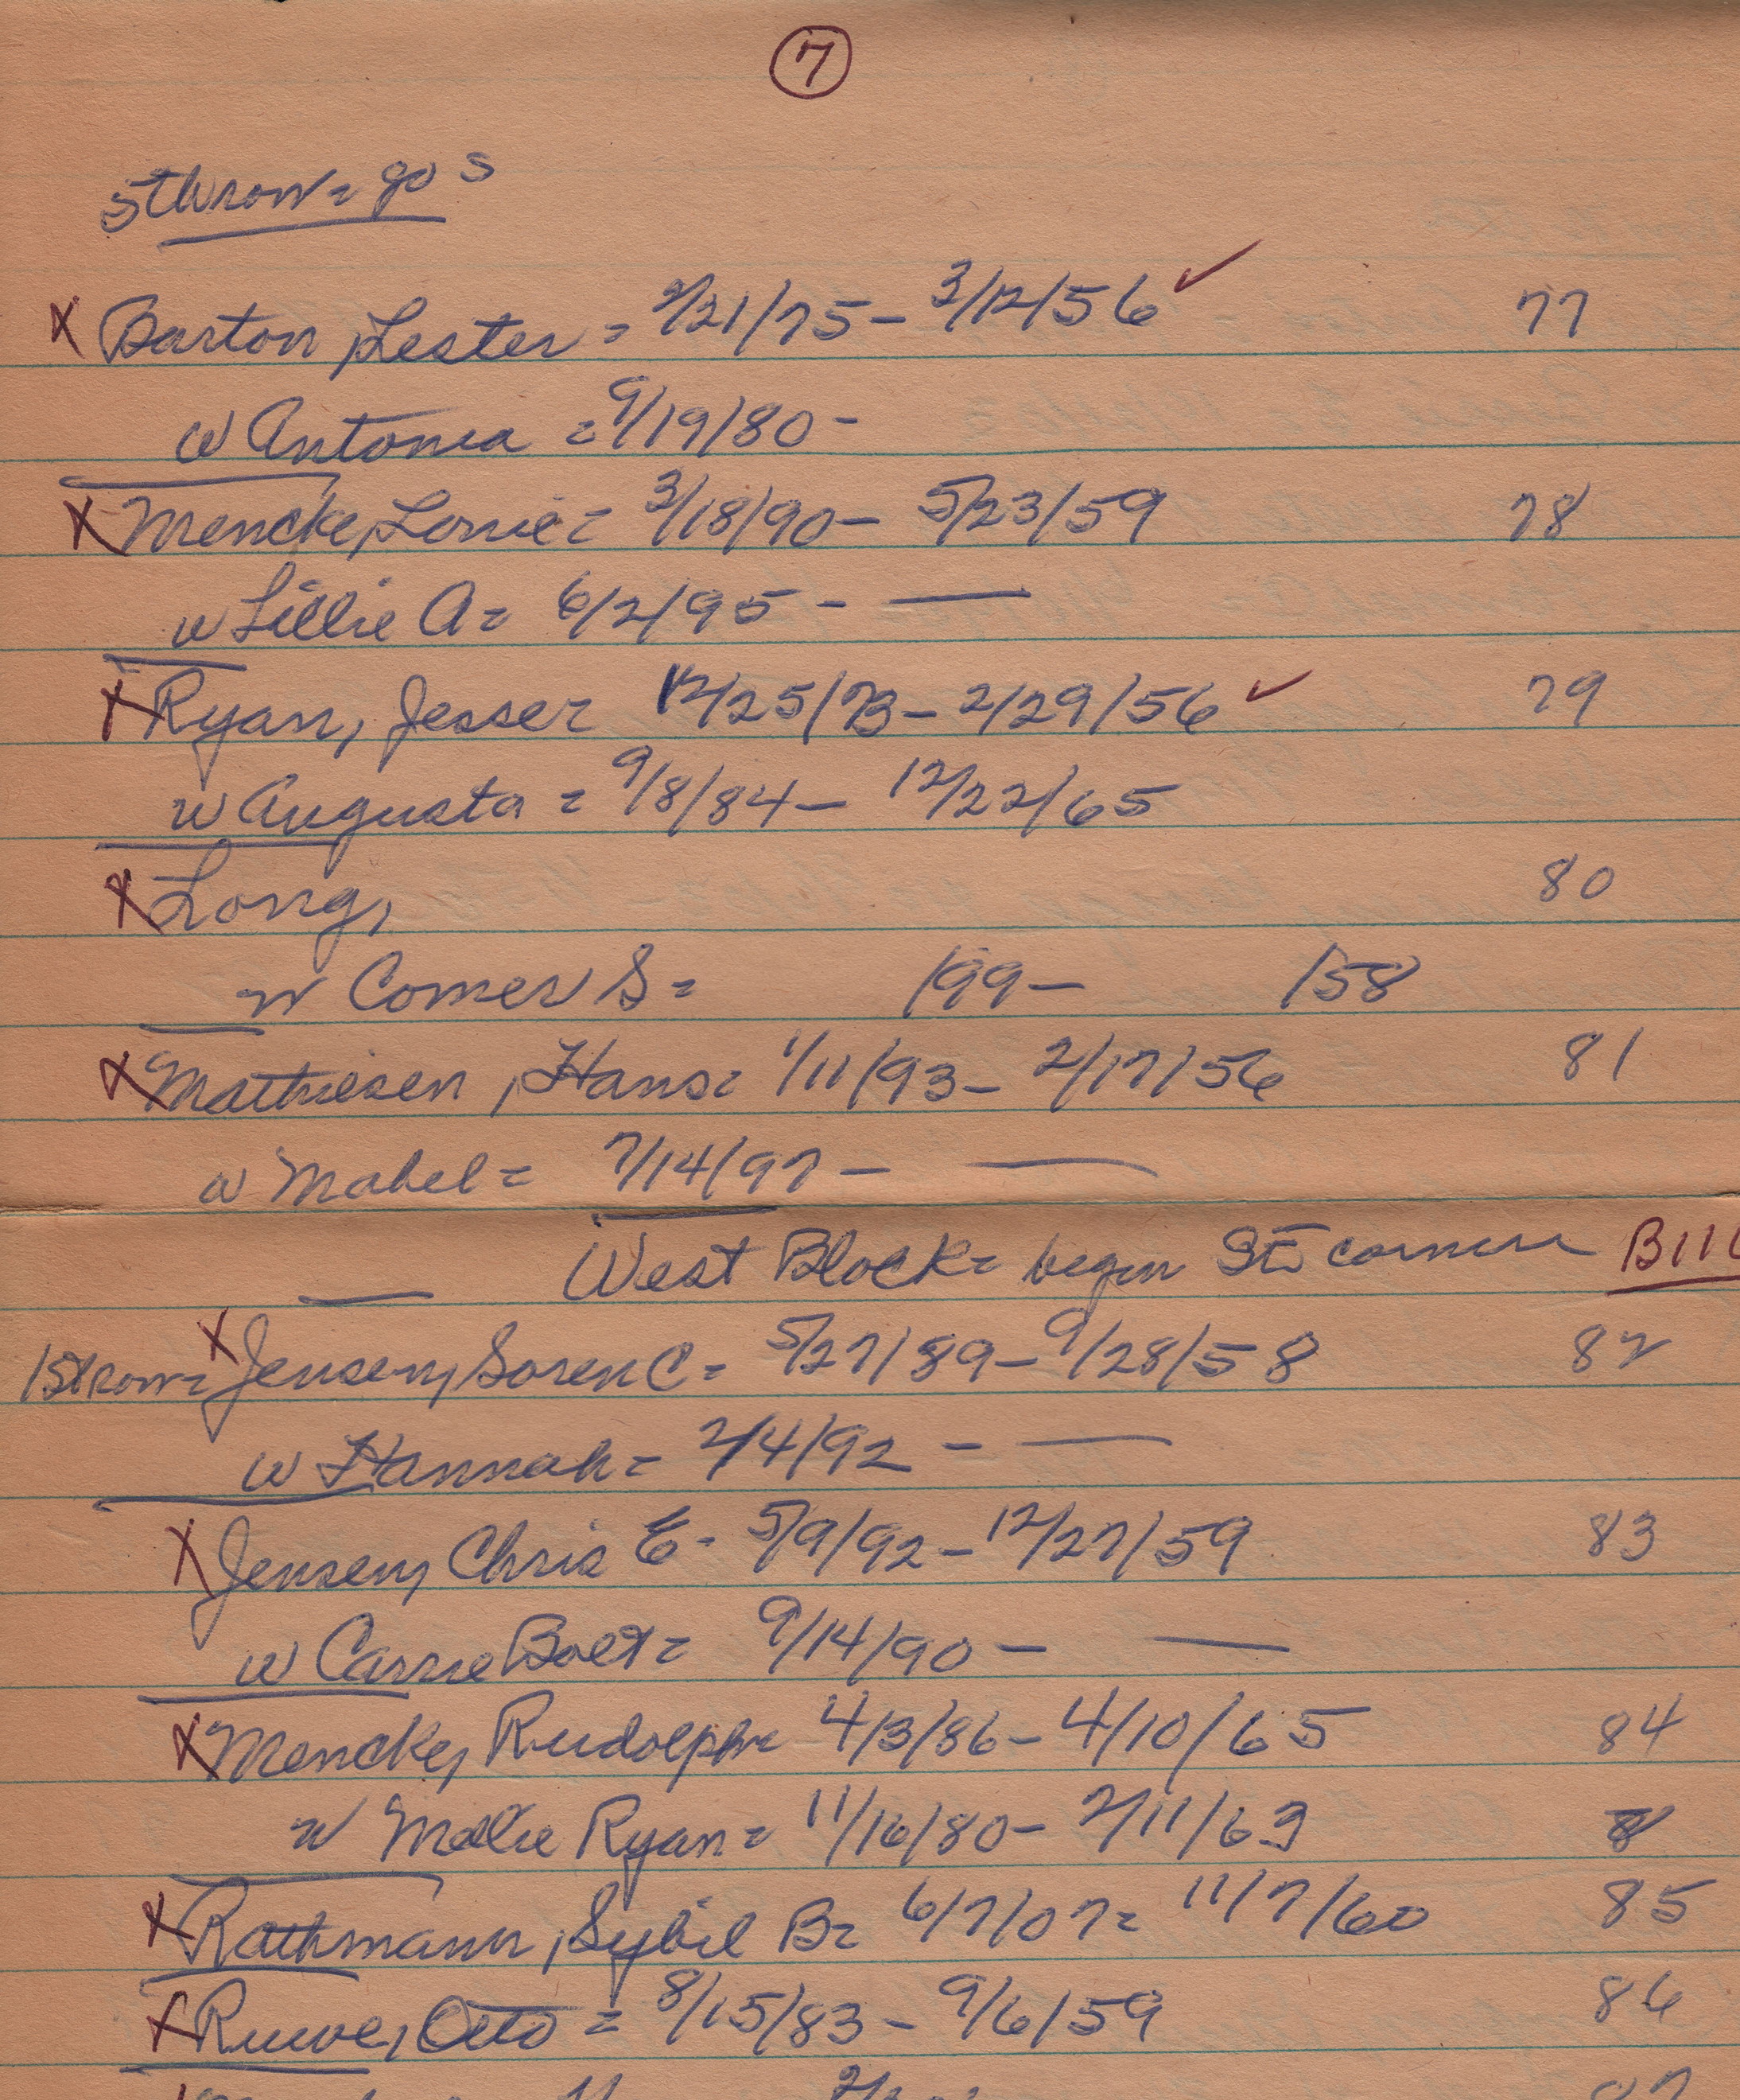 7
5th row = go S
X Barton, Lester = 2/21/75 - 3/12/56 ✓ 77
w Antonia = 9/19/80 -
X Mencke, Lorrie = 3/18/90 - 5/23/59 78
w Lillie A = 6/2/95 - —
X Ryan, Jesse = 12/25/73 - 2/29/56 ✓ 79
w Augusta = 9/8/84 - 12/22/65
X Long, 80
w Comer S = /99 - /58
X Mathiesen, Hans = 1/11/93 - 2/17/56 81
w Mabel = 7/14/97 - —
West Block = begin corner
1st row = X Jensen, Soren C = 5/27/89 - 9/28/58 82
w Hannah = 2/4/92 - —
X Jensen, Chris E - 5/9/92 - 12/27/59 83
w Carrie Bolt = 9/14/90 - —
X Mencke, Rudolph = 4/3/86 - 4/10/65 84
w Mollie Ryan = 11/16/80 - 2/11/63 8
X Rathmann, Sybil B = 6/7/07 = 11/7/60 85
X Ruwe, Otto = 8/15/83 - 9/6/59 86